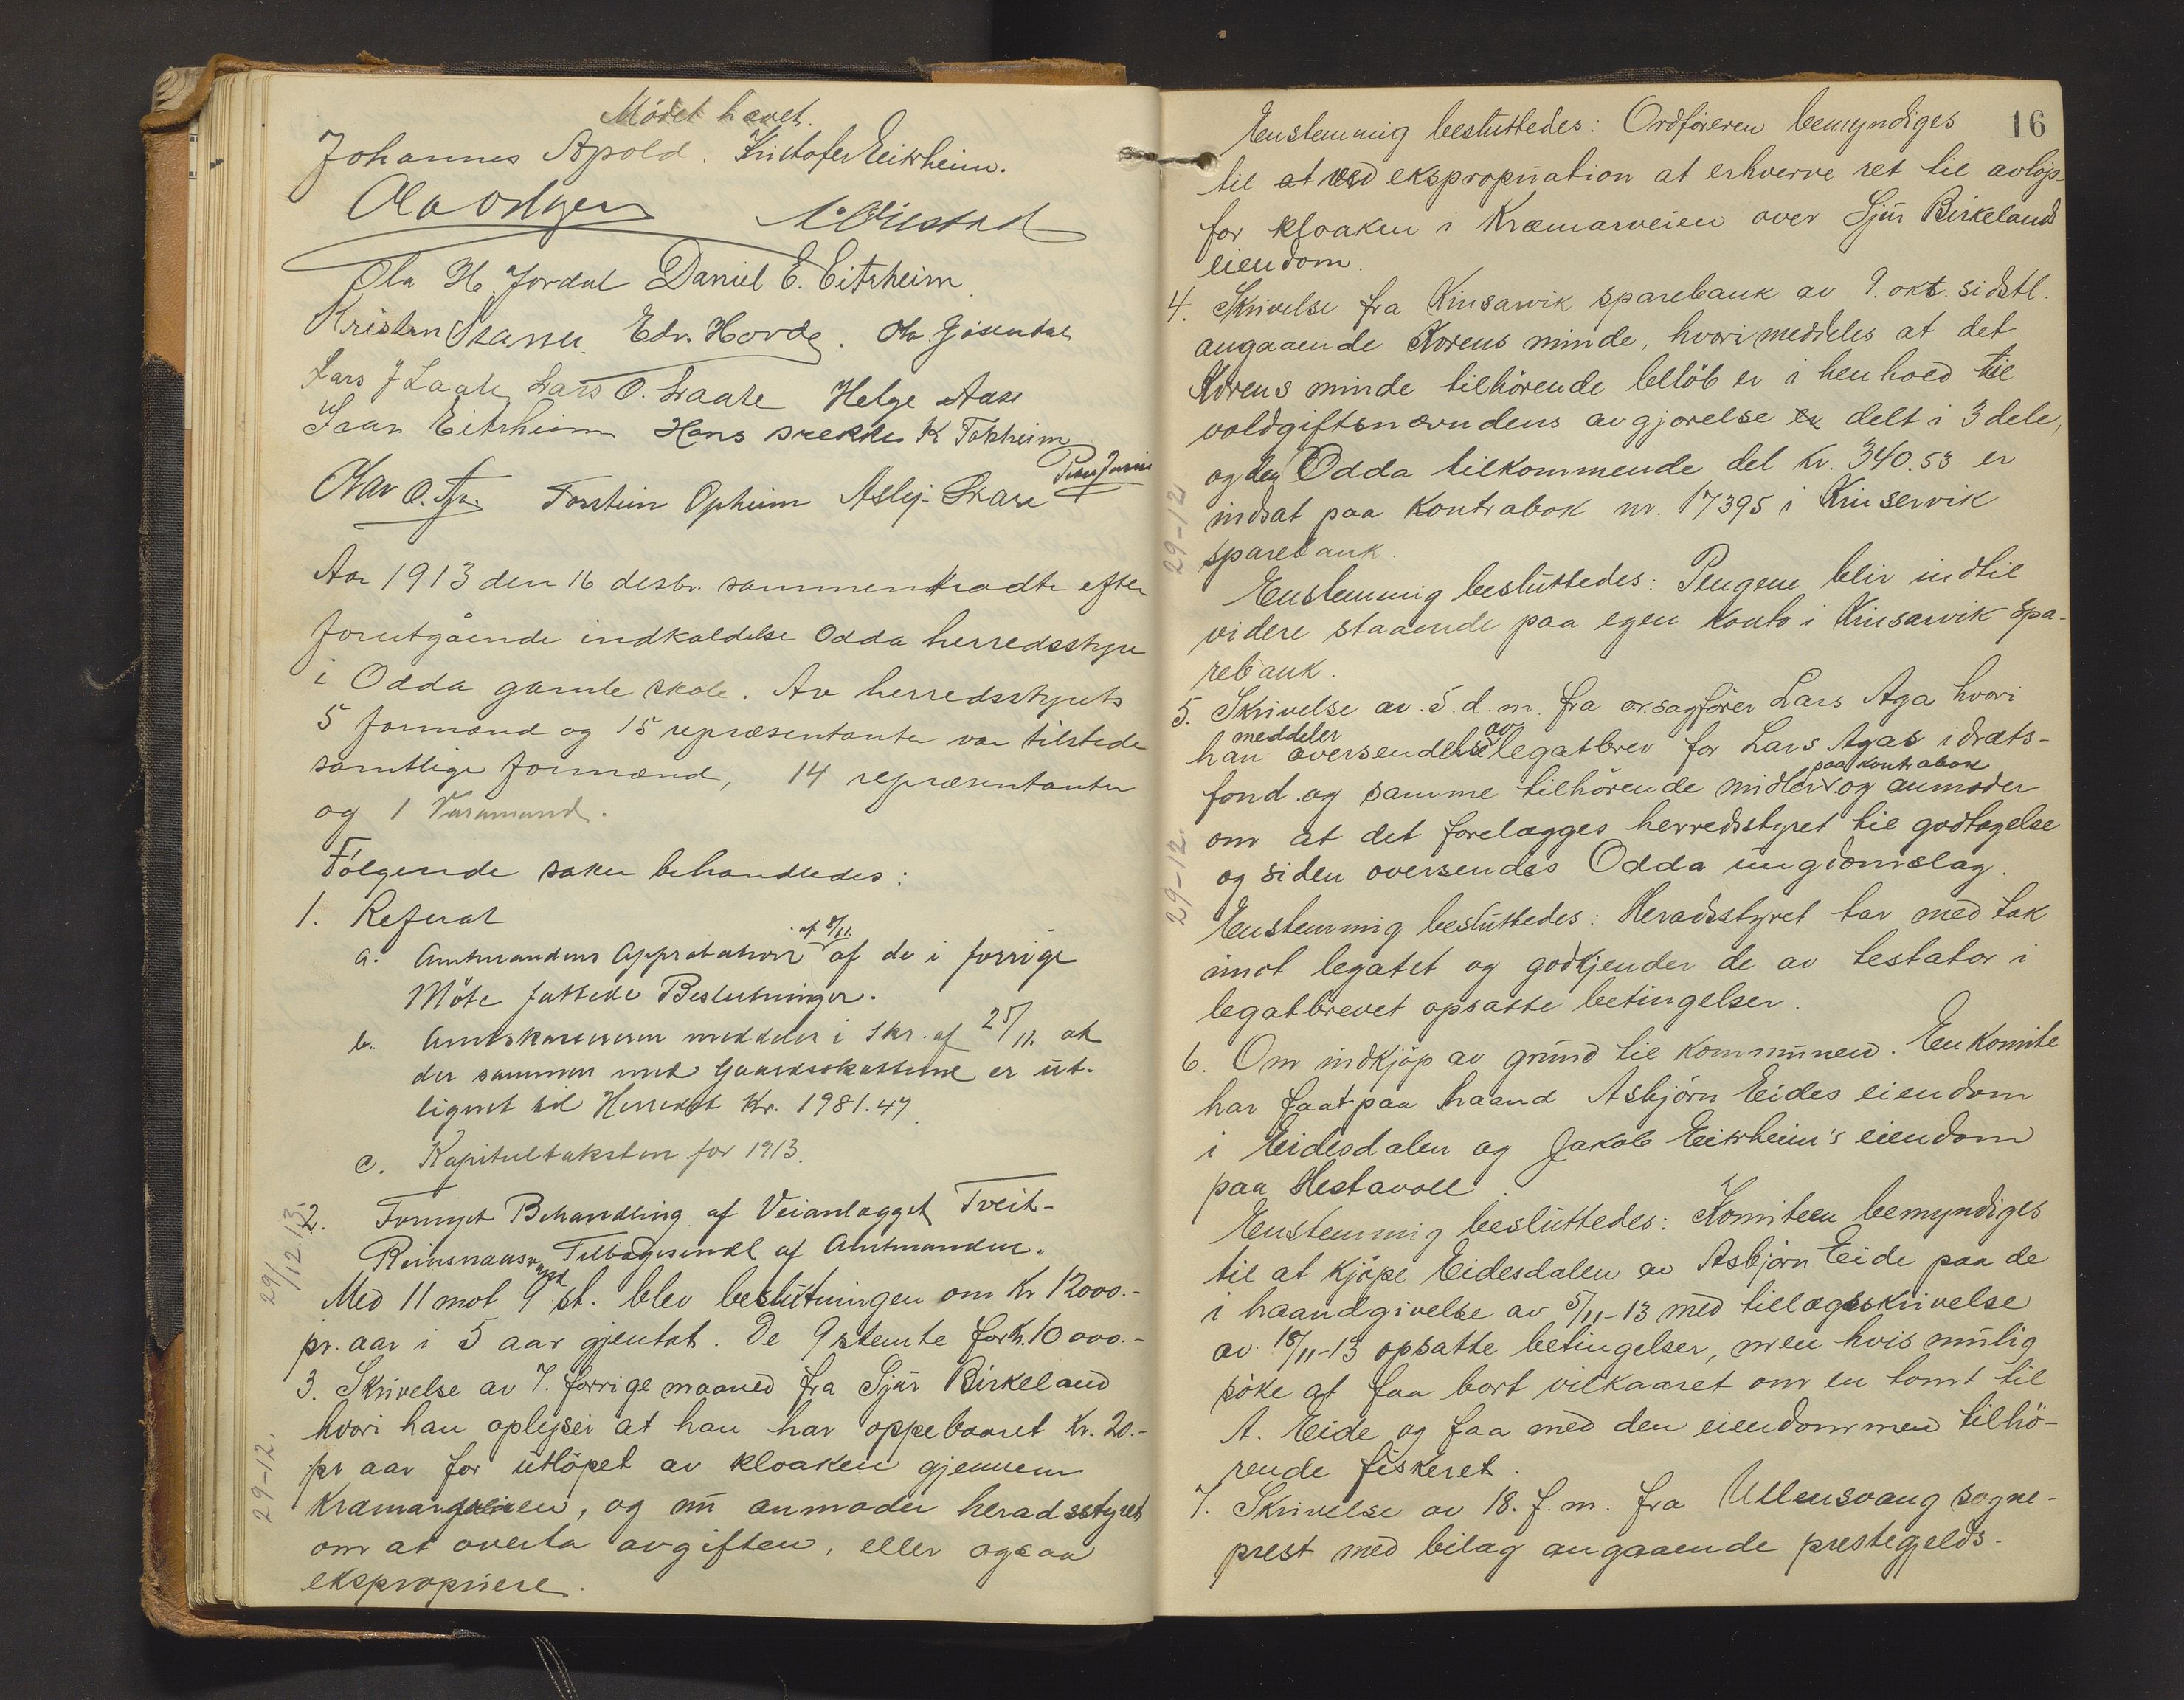 Mødet hævet.
Johannes Apold. Kristofer Eitrheim.
Ola H. Jordal Daniel E. Eitrheim
Kristen Skaane. Edv. Hovde. Ola Gjøsendal
Lars J Laate Lars O. Laate Helge Aase
Isaar Eitrheim Hans Prekke K Tokheim
Olav O. Torstein Opheim Asbj. Skare
Aar 1913 den 16 desbr. sammentraadte efter
forutgående indkaldelse Odda herredsstyre
i Odda gamle skole. Av herredsstyrets
5 formænd og 15 repræsentanter var tilstede
samtlige formænd, 14 repræsentanter
og 1 Varamand.
Følgende saker behandledes:
1. Referat
a. Amtmandens Approbation af 8/11. af de i forrige
Möte fattede Beslutninger.
b. Amtskassereren meddeler i Skr. af 25/11. at
der sammen med Gaardsskatterne er ut-
lignet til Herredet Kr. 1981.47.
c. Kapitultaksten for 1913.
29/12 13. 2. Fornyet Behandling af Veianlægget Tveit-
Reinsnaas, Tilbagesendt af Amtmanden.
Med 11 mot 9 st. blev beslutningen om Kr 12000.-
pr. aar i 5 aar gjentat. De 9 stemte for Kr. 10 000.-
3. Skrivelse av 7. forrige maaned fra Sjur Birkeland
hvori han oplyser at han har oppebaaret Kr. 20.-
29-12. pr aar for utlöpet av kloaken gjennem
Kræmarveien, og nu anmoder heradsstyret
om at overta avgiften, eller ogsaa
ekspropriere.
16
Enstemmig besluttedes: Ordføreren bemyndiges
til at ved ekspropriation at erhverve ret til avløp
for kloaken i Kræmarveien over Sjur Birkelands
eiendom.
4. Skrivelse fra Kinsarvik sparebank av 9. okt. sidstl.
angaaende Korens minde, hvori meddeles at det
Korens minde tilhörende beløb er i henhold til
voldgiftsnævndens avgjørelse er delt i 3 dele,
og den Odda tilkommende del kr. 340.53 er
29-12 indsat paa Kontrabok nr. 17395 i Kinservik
sparebank.
Enstemmig besluttedes: Pengene blir indtil
videre staaende paa egen konto i Kinsarvik spa-
rebank.
5. Skrivelse av 5. d. m. fra o.r.sagfører Lars Aga hvori
han meddeler oversendelse av legatbrev for Lars Agas idræts-
fond og samme tilhørende midler paa kontrabok og anmoder
om at det forelægges herredsstyret til godtagelse
29-12. og siden oversendes Odda ungdomslag.
Enstemmig besluttedes: Heradsstyret tar med tak
imot legatet og godkjender de av testator i
legatbrevet opsatte betingelser.
6. Om indkjøp av grund til kommunen. En komite
har faat paa haand Asbjörn Eides eiendom
i Eidesdalen og Jakob Eitrheim's eiendom
paa Hestavoll.
Enstemmig besluttedes: Komiteen bemyndiges
til at kjøpe Eidesdalen av Asbjørn Eide paa de
i haandgivelse av 5/11-13 med tillægsskrivelse
av 18/11-13 opsatte betingelser, men hvis mulig
søke at faa bort vilkaaret om en tomt til
A. Eide og faa med den eiendommen tilhö-
rende fiskeret.
7. Skrivelse av 18. f. m. fra Ullensvang sogne-
prest med bilag angaaende prestegjelds-